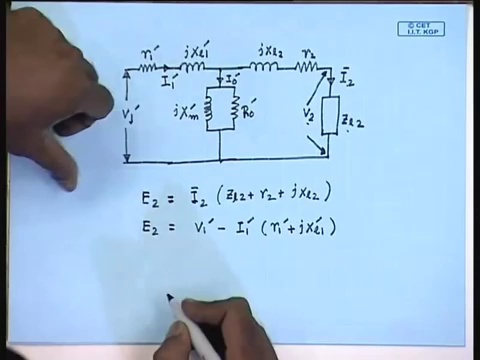 © CET
I.I.T. KGP
r₁′ jxℓ₁′ jxℓ₂ r₂
I₁′ I₀′ Ī₂
V₁′ jX′m R₀′ V₂ Zℓ₂
E₂ = Ī₂ (Zℓ₂ + r₂ + jxℓ₂)
E₂ = V₁′ − I₁′ (r₁′ + jxℓ₁′)